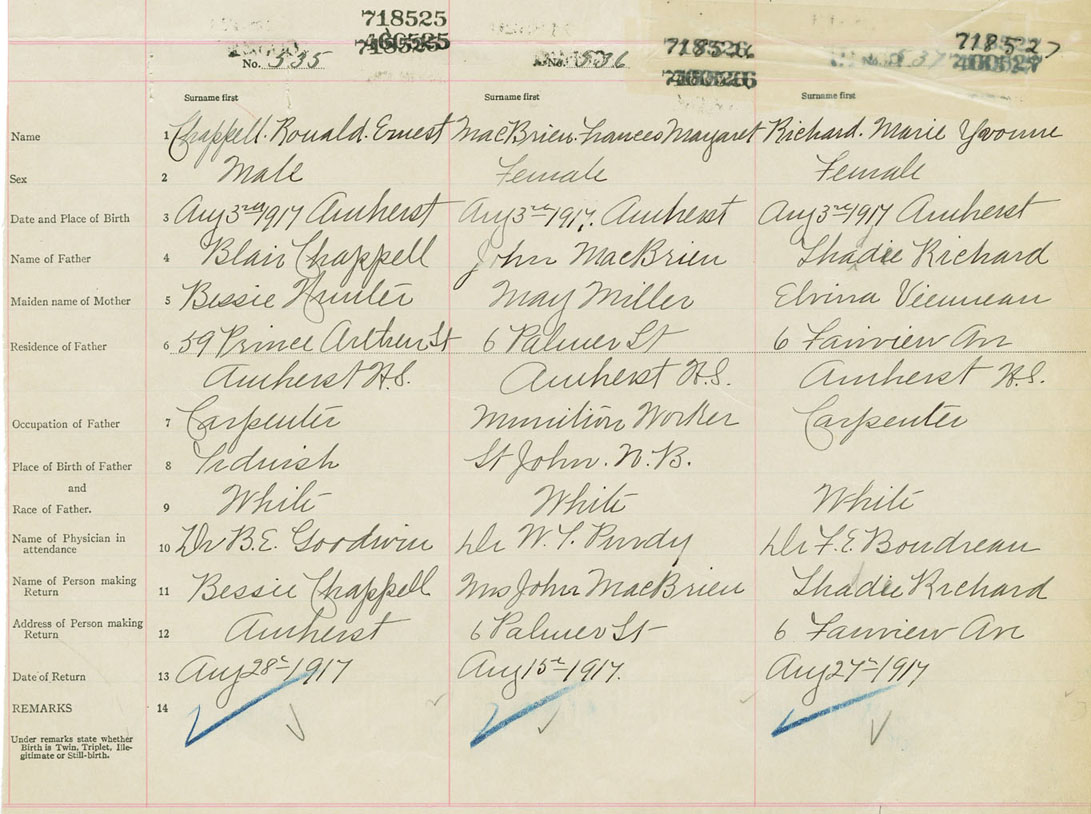 718525 718526 718527
No. 535 No. 536 537
Surname first Surname first Surname first
Name 1 Chappell. Ronald. Ernest MacBrien. Frances Margaret Richard. Marie Yvonne
Sex 2 Male Female Female
Date and Place of Birth 3 Aug 3rd 1917 Amherst Aug 3rd 1917. Amherst Aug 3rd 1917 Amherst
Name of Father 4 Blair Chappell John MacBrien Thadie Richard
Maiden name of Mother 5 Bessie Hunter May Miller Elvina Vienneau
Residence of Father 6 59 Prince Arthur St 6 Palmer St 6 Fairview Av
Amherst N.S. Amherst N.S. Amherst N.S.
Occupation of Father 7 Carpenter Munition Worker Carpenter
Place of Birth of Father 8 Tidnish St John. N.B.
and
Race of Father. 9 White White White
Name of Physician in
attendance 10 Dr B.E. Goodwin Dr W.T. Purdy Dr F.E. Boudreau
Name of Person making
Return 11 Bessie Chappell Mrs John MacBrien Thadie Richard
Address of Person making
Return 12 Amherst 6 Palmer St 6 Fairview Av
Date of Return 13 Aug 28th 1917 Aug 15th 1917. Aug 27th 1917
REMARKS 14
Under remarks state whether
Birth is Twin, Triplet, Ille-
gitimate or Still-birth.